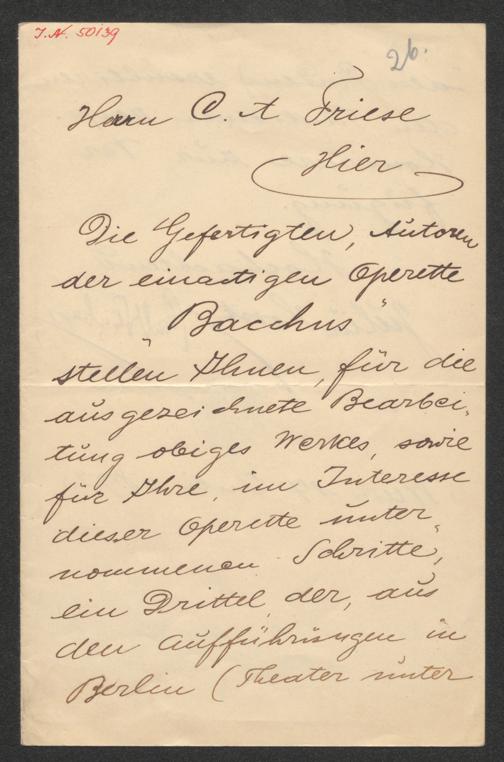 I.N. 50139
26.
Herrn C. A Friese
Hier
Die Gefertigten, Autoren
der einactigen Operette
"Bacchus"
stellen Ihnen, für die
ausgezeichnete Bearbei-
tung obiges Werkes, sowie
für Ihre, im Interesse
dieser Operette unter-
nommenen Schritte,
ein Drittel der, aus
den Aufführungen in
Berlin (Theater unter